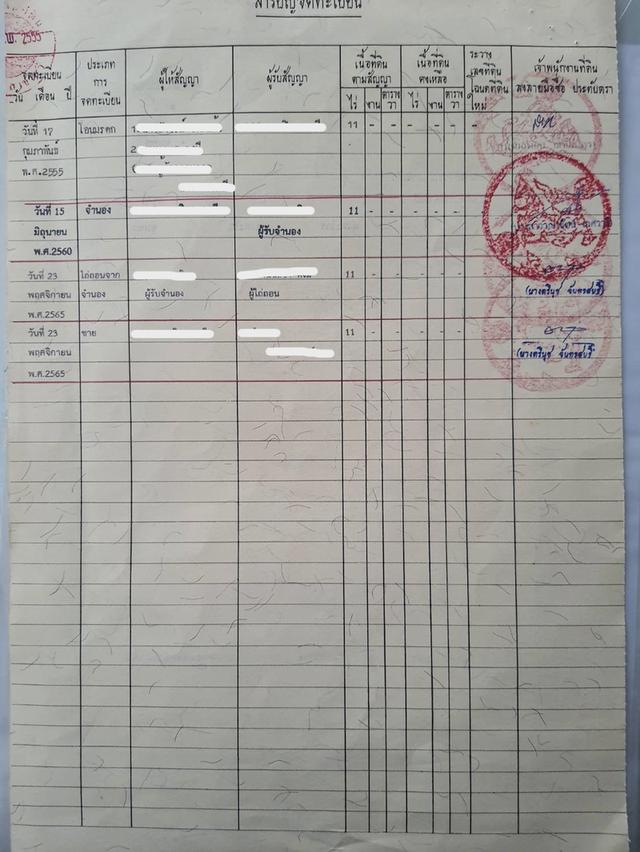 สารบัญจดทะเบียน
พ. 2555
จดทะเบียน
วัน เดือน ปี
ประเภท
การ
จดทะเบียน
ผู้ให้สัญญา
ผู้รับสัญญา
เนื้อที่ดิน
ตามสัญญา
ไร่ งาน ตาราง
วา
เนื้อที่ดิน
คงเหลือ
ไร่ งาน ตาราง
วา
ระวาง
เลขที่ดิน
โฉนดที่ดิน
ใหม่
เจ้าพนักงานที่ดิน
ลงลายมือชื่อ ประทับตรา
วันที่ 17 โอนมรดก 1. 11 - - - - - -
กุมภาพันธ์ 2
พ.ศ.2555
วันที่ 15 จำนอง 11 - - - - -
มิถุนายน ผู้รับจำนอง
พ.ศ.2560
วันที่ 23 ไถ่ถอนจาก 11 - - - - -
พฤศจิกายน จำนอง ผู้รับจำนอง ผู้ไถ่ถอน
พ.ศ.2565
วันที่ 23 ขาย 11 - - - - -
พฤศจิกายน
พ.ศ.2565